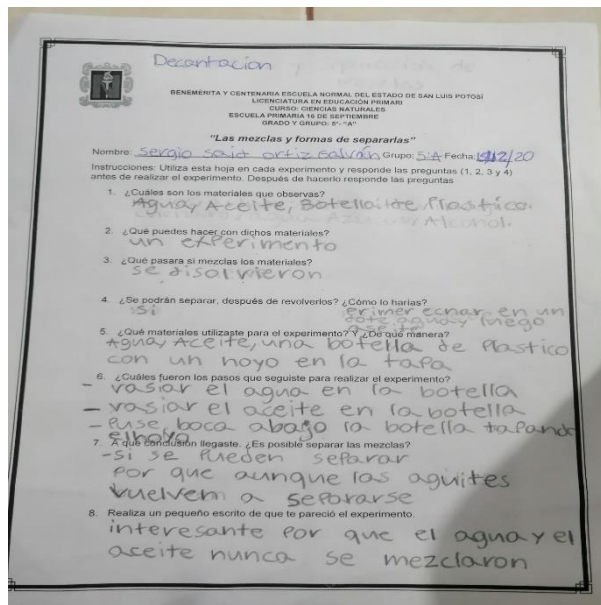 Decantacion
BENEMÉRITA Y CENTENARIA ESCUELA NORMAL DEL ESTADO DE SAN LUIS POTOSÍ
LICENCIATURA EN EDUCACIÓN PRIMARI
CURSO: CIENCIAS NATURALES
ESCUELA PRIMARIA 16 DE SEPTIEMBRE
GRADO Y GRUPO: 5°- "A"
"Las mezclas y formas de separarlas"
Nombre: Sergio Said ortiz galván Grupo: 5:A Fecha: /12/20
Instrucciones: Utiliza esta hoja en cada experimento y responde las preguntas (1, 2, 3 y 4)
antes de realizar el experimento. Después de hacerlo responde las preguntas
1. ¿Cuáles son los materiales que observas?
Agua, Aceite, Botella de Plastico.
2. ¿Qué puedes hacer con dichos materiales?
un experimento
3. ¿Qué pasara si mezclas los materiales?
se disolvieron
4. ¿Se podrán separar, después de revolverlos? ¿Cómo lo harías?
Si Primer ecnar en un
bote agua y luego
aseite
5. ¿Qué materiales utilizaste para el experimento? Y ¿De qué manera?
Agua, Aceite, una botella de Plastico
con un hoyo en la tapa
6. ¿Cuáles fueron los pasos que seguiste para realizar el experimento?
- vasar el agua en la botella
- vasiar el aceite en la botella
- Puse boca abajo la botella tapando
el hoyo
7. A qué conclusión llegaste. ¿Es posible separar las mezclas?
- Si se Pueden separar
Por que aunque las aguites
vuelvem a separarse
8. Realiza un pequeño escrito de que te pareció el experimento.
interesante Por que el agua y el
aceite nunca se mezclaron